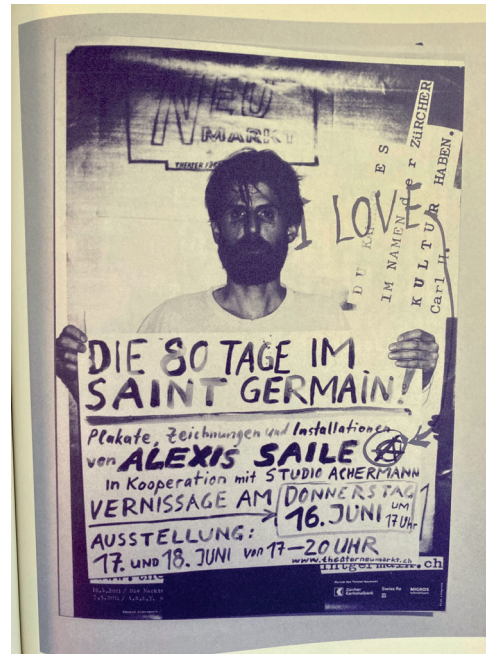 NEU
MARKT
I LOVE
DU ES
IM NAMEN der ZÜRCHER
KULTUR HABEN.
Carl H.
DIE 80 TAGE IM
SAINT GERMAIN!
Plakate, Zeichnungen und Installationen
von ALEXIS SAILE
in Kooperation mit STUDIO ACHERMANN
VERNISSAGE AM DONNERSTAG
16. JUNI UM
17 Uhr
AUSSTELLUNG:
17. UND 18. JUNI von 17–20 UHR
www.theaterneumarkt.ch
Zürcher
Kantonalbank
Swiss Re
MIGROS